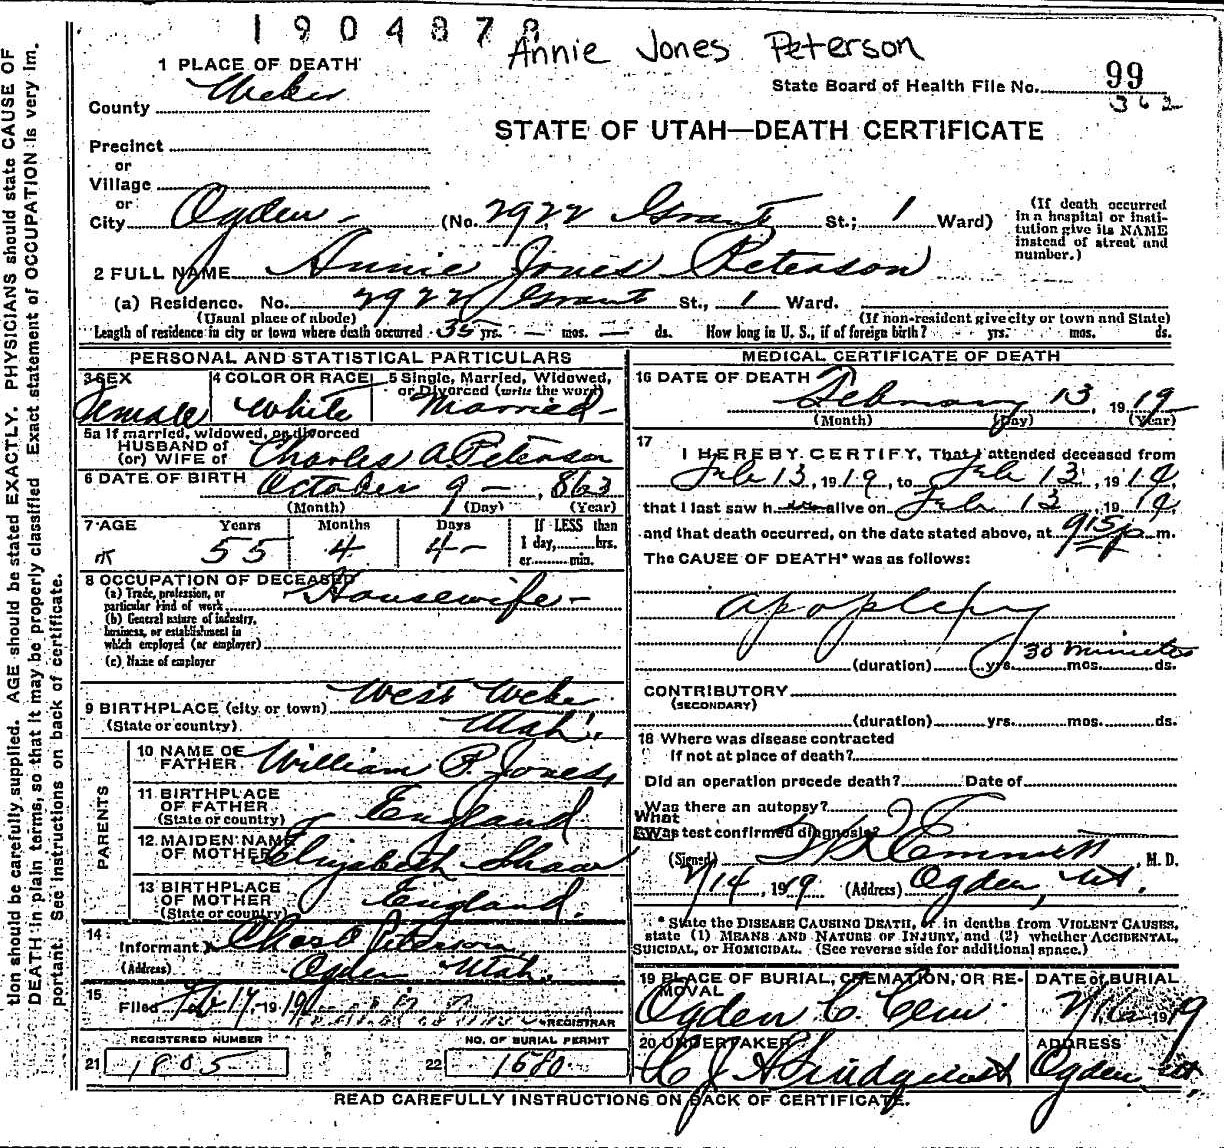 1904878
Annie Jones Peterson
1 PLACE OF DEATH
State Board of Health File No. 99
362
County Weber
STATE OF UTAH—DEATH CERTIFICATE
Precinct
or
Village
or
City Ogden - (No. 2922 Grant St.; 1 Ward)
(If death occurred in a hospital or insti-
tution give its NAME instead of street and number.)
2 FULL NAME Annie Jones Peterson
(a) Residence. No. 2922 Grant St., 1 Ward.
(Usual place of abode) (If non-resident give city or town and State)
Length of residence in city or town where death occurred 35 yrs. — mos. — ds. How long in U. S., if of foreign birth? yrs. mos. ds.
PERSONAL AND STATISTICAL PARTICULARS
3 SEX Female
4 COLOR OR RACE White
5 Single, Married, Widowed, or Divorced (write the word) Married
5a If married, widowed, or divorced
HUSBAND of
(or) WIFE of Charles A. Peterson
6 DATE OF BIRTH October 9 - , 863
(Month) (Day) (Year)
7 AGE Years Months Days If LESS than
55 4 4 - 1 day, hrs.
or min.
8 OCCUPATION OF DECEASED
(a) Trade, profession, or
particular kind of work Housewife -
(b) General nature of industry,
business, or establishment in
which employed (or employer)
(c) Name of employer
9 BIRTHPLACE (city or town) West Weber
(State or country) Utah.
PARENTS
10 NAME OF
FATHER William P. Jones
11 BIRTHPLACE
OF FATHER England
(State or country)
12 MAIDEN NAME
OF MOTHER Elizabeth Shaw
13 BIRTHPLACE
OF MOTHER England.
(State or country)
14
Informant Chas A Peterson
(Address) Ogden Utah.
15
Filed Feb 17, 19 19
REGISTRAR
REGISTERED NUMBER NO. OF BURIAL PERMIT
21 1805 22 1680
MEDICAL CERTIFICATE OF DEATH
16 DATE OF DEATH February 13, 19 19
(Month) (Day) (Year)
17
I HEREBY CERTIFY, That I attended deceased from
Feb 13, 19 19, to Feb 13, 19 19,
that I last saw h alive on Feb 13, 19 19,
and that death occurred, on the date stated above, at 915 p m.
The CAUSE OF DEATH* was as follows:
apoplexy
30 minutes
(duration) yrs. mos. ds.
CONTRIBUTORY
(SECONDARY)
(duration) yrs. mos. ds.
18 Where was disease contracted
If not at place of death?
Did an operation precede death? Date of
Was there an autopsy?
What
Was test confirmed diagnosis?
(Signed) Emmett, M. D.
2/14, 1919 (Address) Ogden, Ut.
* State the DISEASE CAUSING DEATH, or in deaths from VIOLENT CAUSES,
state (1) MEANS AND NATURE OF INJURY, and (2) whether ACCIDENTAL,
SUICIDAL, OR HOMICIDAL. (See reverse side for additional space.)
19 PLACE OF BURIAL, CREMATION, OR RE-
MOVAL
DATE of BURIAL
Ogden C. Cem. 2/16 1919
20 UNDERTAKER ADDRESS
Lindquist Ogden Ut.
READ CAREFULLY INSTRUCTIONS ON BACK OF CERTIFICATE.
tion should be carefully supplied. AGE should be stated EXACTLY. PHYSICIANS should state CAUSE OF
DEATH in plain terms, so that it may be properly classified. Exact statement of OCCUPATION is very im-
portant. See instructions on back of certificate.